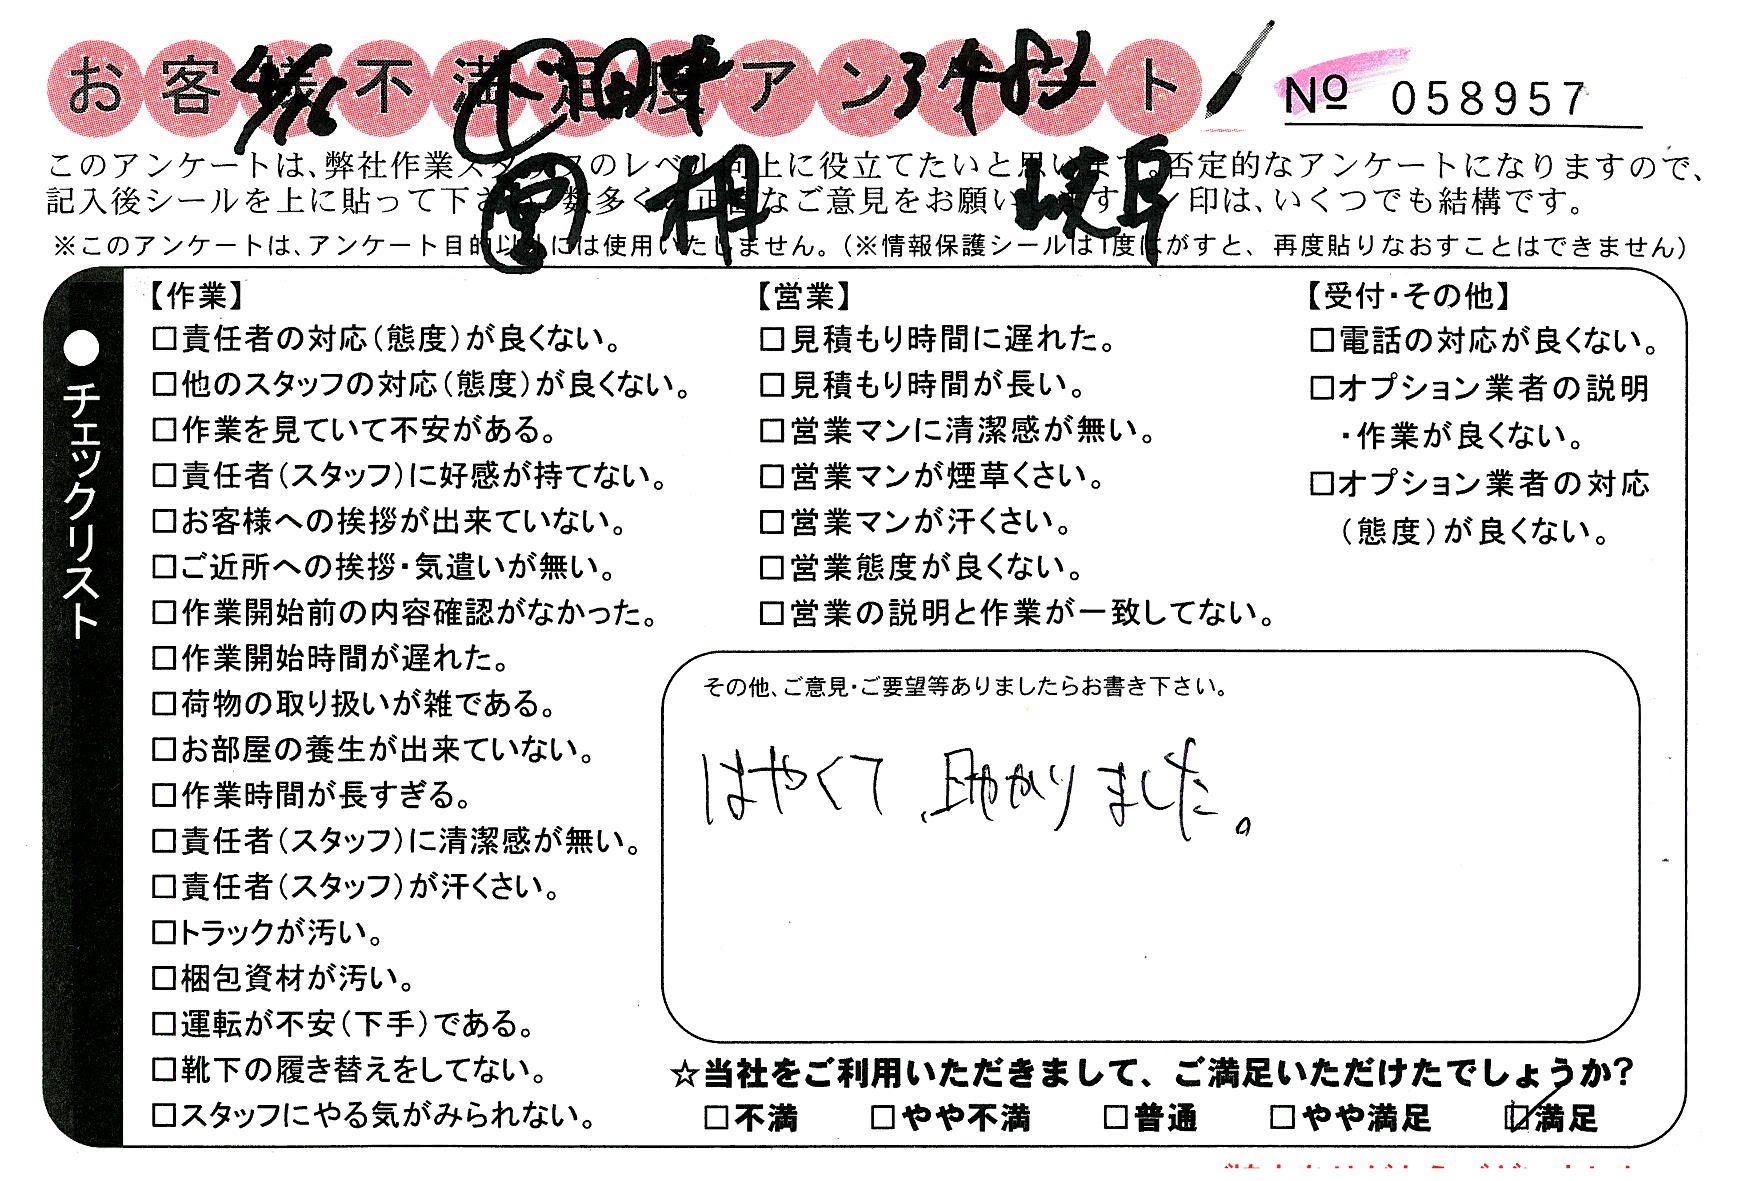 お客様不満足度アンケート
№ 058957
4/16
田中
3482
相
岐阜
このアンケートは、弊社作業スタッフのレベル向上に役立てたいと思います。否定的なアンケートになりますので、
記入後シールを上に貼って下さい。数多くの正直なご意見をお願いします。レ印は、いくつでも結構です。
※このアンケートは、アンケート目的以外には使用いたしません。(※情報保護シールは1度はがすと、再度貼りなおすことはできません)
●チェックリスト
【作業】
□責任者の対応(態度)が良くない。
□他のスタッフの対応(態度)が良くない。
□作業を見ていて不安がある。
□責任者(スタッフ)に好感が持てない。
□お客様への挨拶が出来ていない。
□ご近所への挨拶・気遣いが無い。
□作業開始前の内容確認がなかった。
□作業開始時間が遅れた。
□荷物の取り扱いが雑である。
□お部屋の養生が出来ていない。
□作業時間が長すぎる。
□責任者(スタッフ)に清潔感が無い。
□責任者(スタッフ)が汗くさい。
□トラックが汚い。
□梱包資材が汚い。
□運転が不安(下手)である。
□靴下の履き替えをしてない。
□スタッフにやる気がみられない。
【営業】
□見積もり時間に遅れた。
□見積もり時間が長い。
□営業マンに清潔感が無い。
□営業マンが煙草くさい。
□営業マンが汗くさい。
□営業態度が良くない。
□営業の説明と作業が一致してない。
【受付・その他】
□電話の対応が良くない。
□オプション業者の説明
・作業が良くない。
□オプション業者の対応
(態度)が良くない。
その他、ご意見・ご要望等ありましたらお書き下さい。
はやくて、助かりました。
☆当社をご利用いただきまして、ご満足いただけたでしょうか?
□不満 □やや不満 □普通 □やや満足 ☑満足